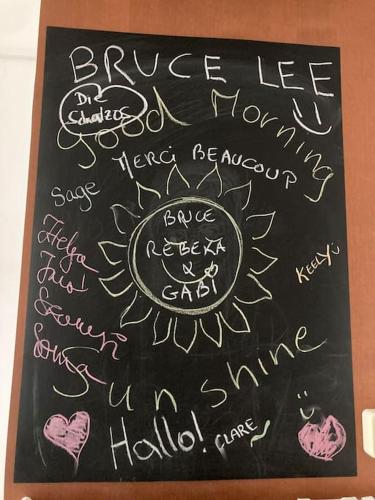 BRUCE LEE
Die
Good Morning
MERCI BEAUCOUP
Sage
BRUCE
REBEKA
&
GABI
KEELY
Helga
Sonja
Sunshine
Hallo!
CLARE